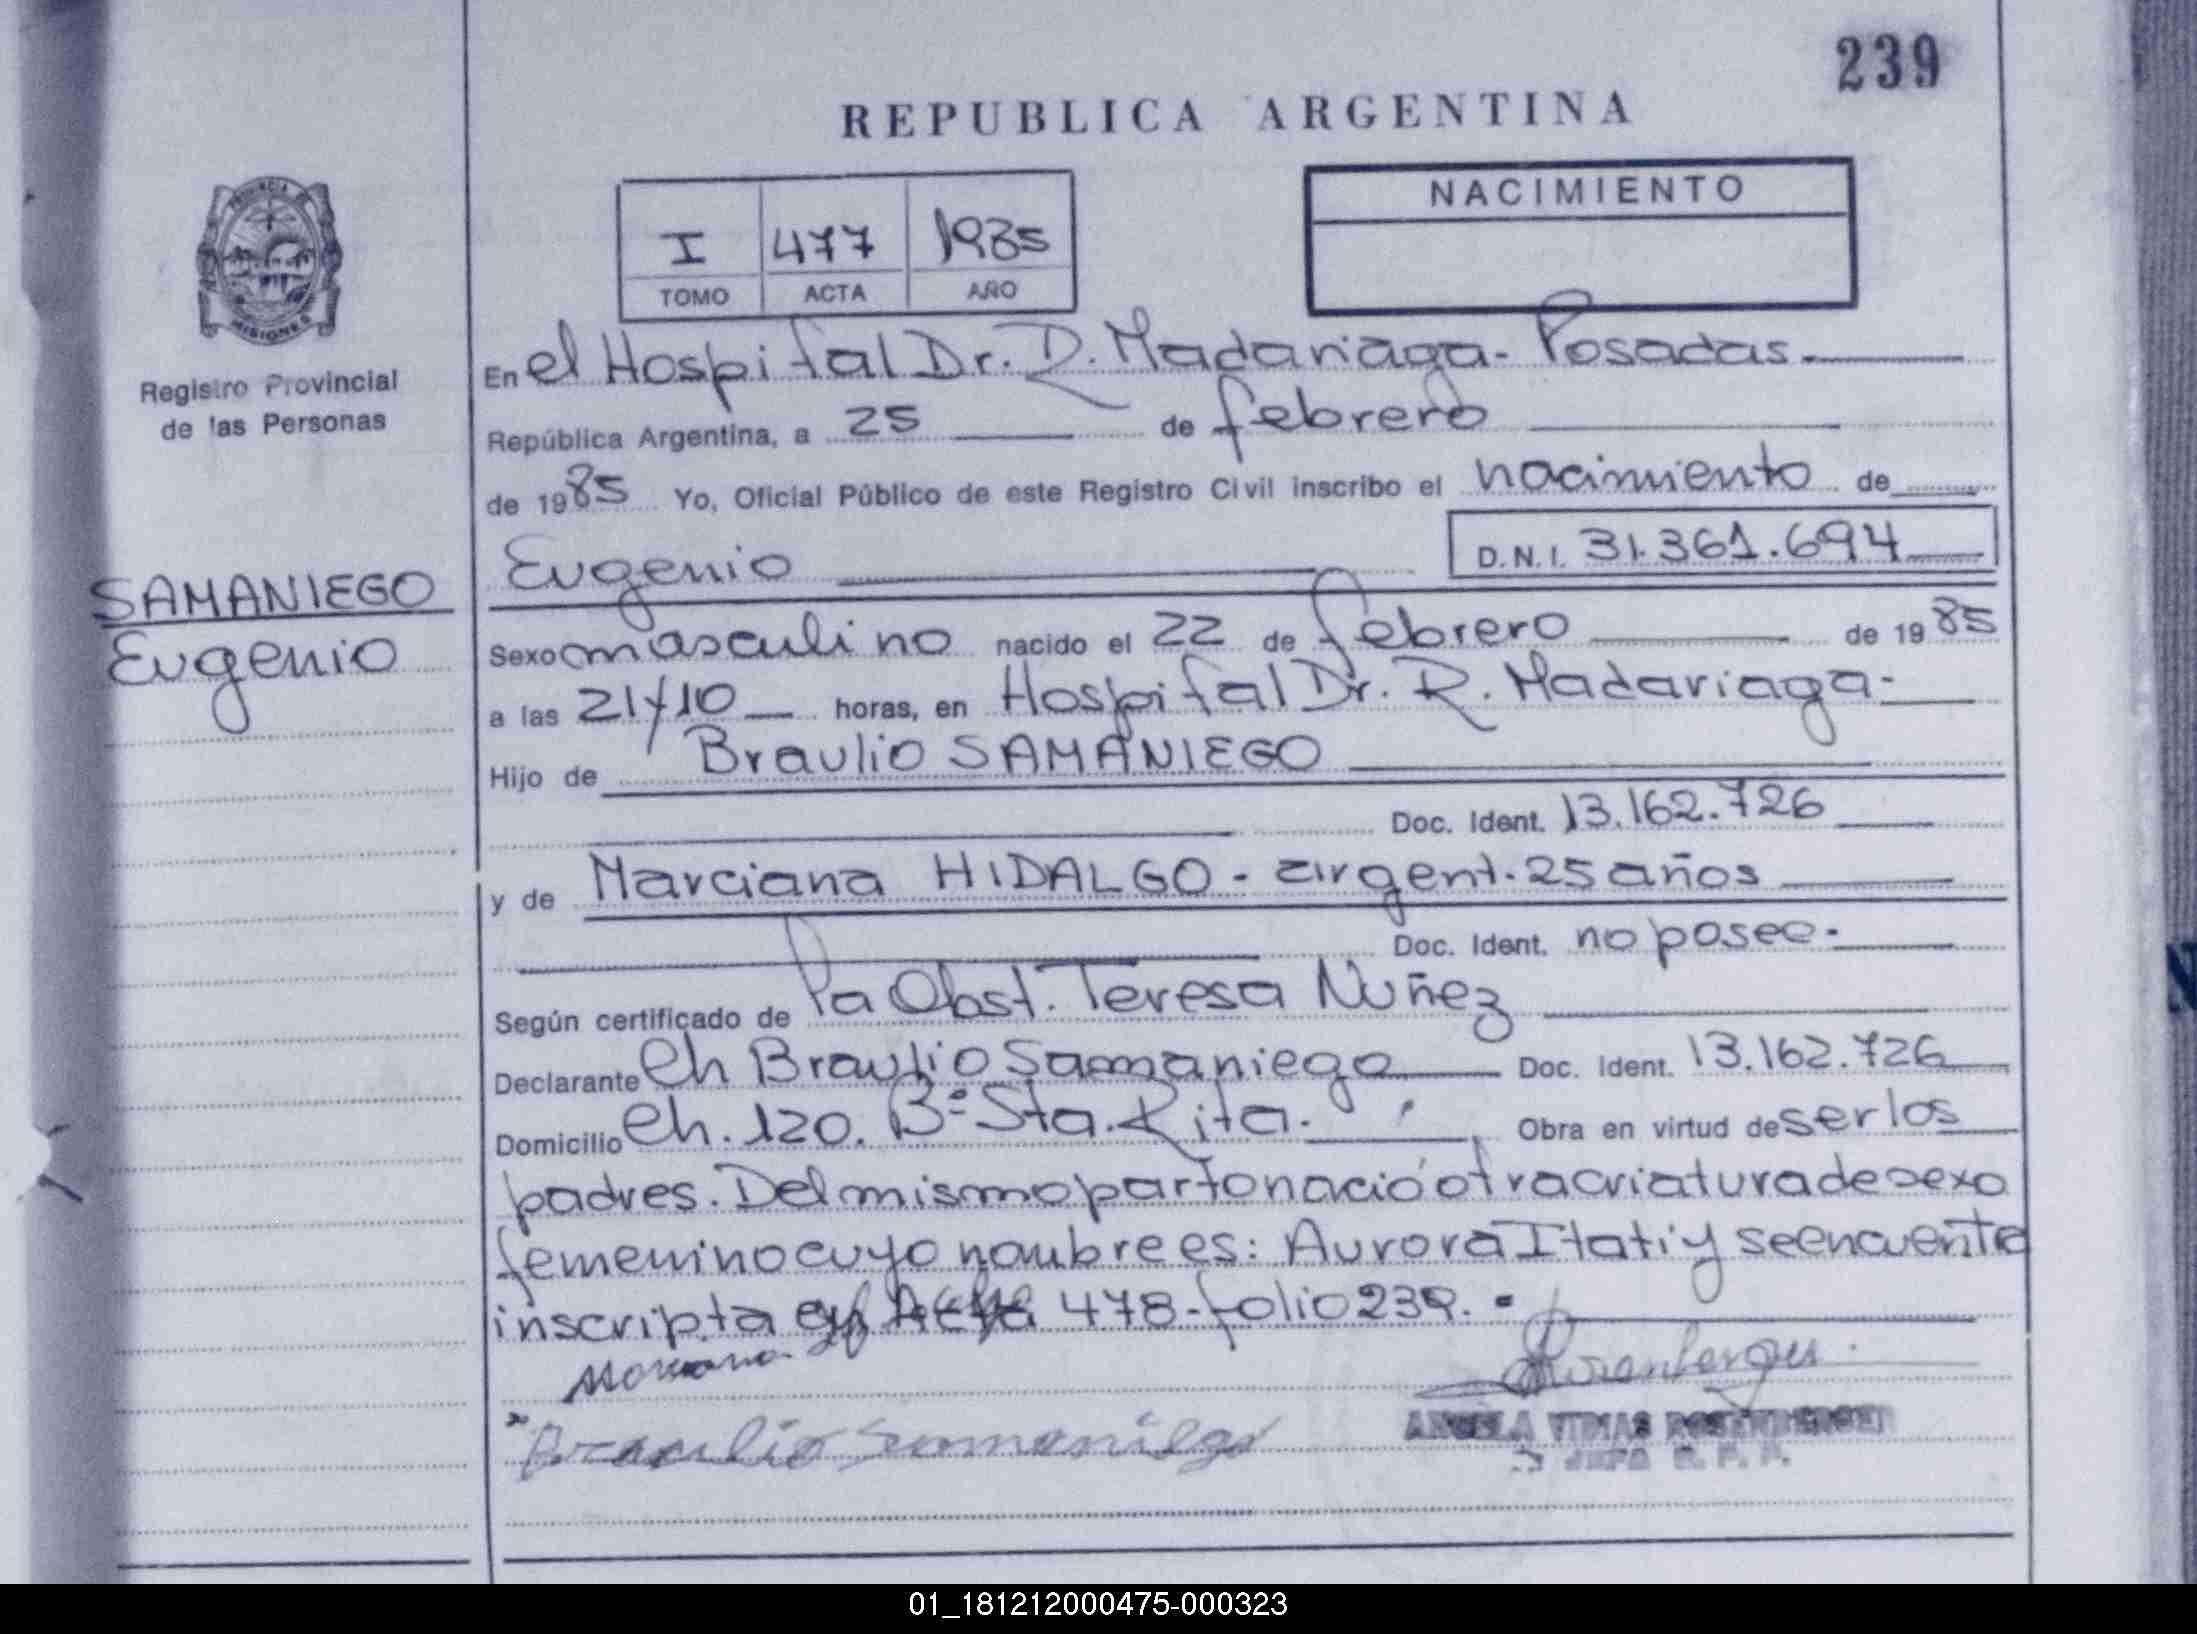 239
REPUBLICA ARGENTINA
PROVINCIA DE
MISIONES
Registro Provincial
de las Personas
I 477 1985
TOMO ACTA AÑO
NACIMIENTO
En el Hospital Dr. R. Madariaga - Posadas.
República Argentina, a 25 de febrero
de 1985 Yo, Oficial Público de este Registro Civil inscribo el nacimiento de
Eugenio D.N.I. 31.361.694
SAMANIEGO
Eugenio
Sexo masculino nacido el 22 de febrero de 1985
a las 21y10 horas, en Hospital Dr. R. Madariaga-
Hijo de Braulio SAMANIEGO
Doc. Ident. 13.162.726
y de Marciana HIDALGO - argent. 25 años
Doc. Ident. no posee.
Según certificado de la Obst. Teresa Nuñez
Declarante Ch Braulio Samaniego Doc. Ident. 13.162.726
Domicilio Ch. 120. Bº Sta. Rita. Obra en virtud de ser los
padres. Del mismo parto nació otra criatura de sexo
femenino cuyo nombre es: Aurora Itatí y se encuentra
inscripta en Acta 478 - folio 239.
Braulio Samaniego
ANGELA ROSENBERGER
JEFA R. P. P.
01_181212000475-000323